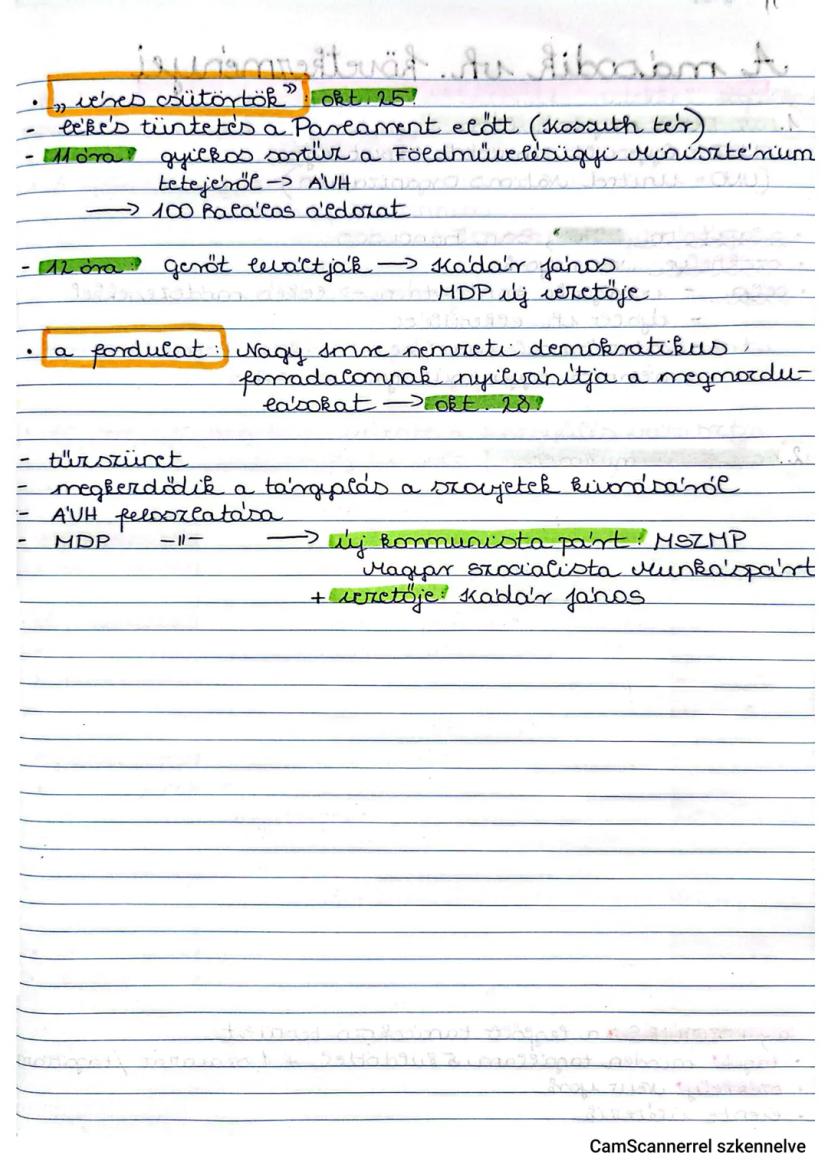 • „véres csütörtök”: okt. 25.
- békés tüntetés a Parlament előtt (Kossuth tér)
- 11 óra: gyilkos sortűz a Földművelésügyi Minisztérium
tetejéről → ÁVH
→ 100 halálos áldozat
- 12 óra: Gerőt leváltják → Kádár János
MDP új vezetője
• a fordulat: Nagy Imre nemzeti demokratikus
forradalomnak nyilvánítja a megmozdu-
lásokat → okt. 28.
- tűzszünet
- megkerdődik a tárgyalás a szovjetek kivonásáról
- ÁVH feloszlatása
- MDP -||- → új kommunista párt: MSZMP
Magyar Szocialista Munkáspárt
+ vezetője: Kádár János
CamScannerrel szkennelve